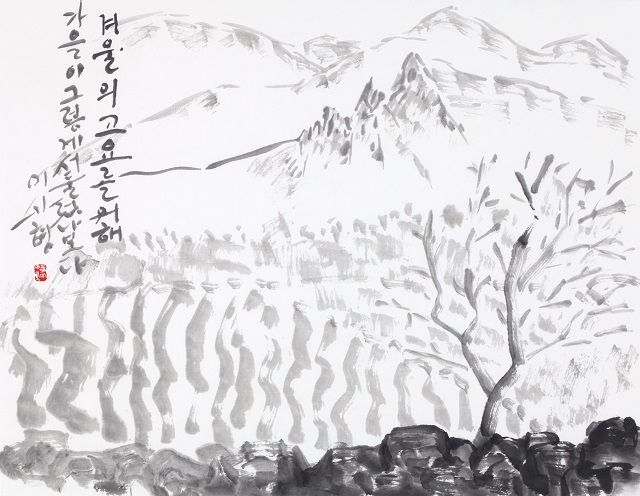 겨울의 고요를 위해
가을이 그렇게 서둘렀나보다
이시형